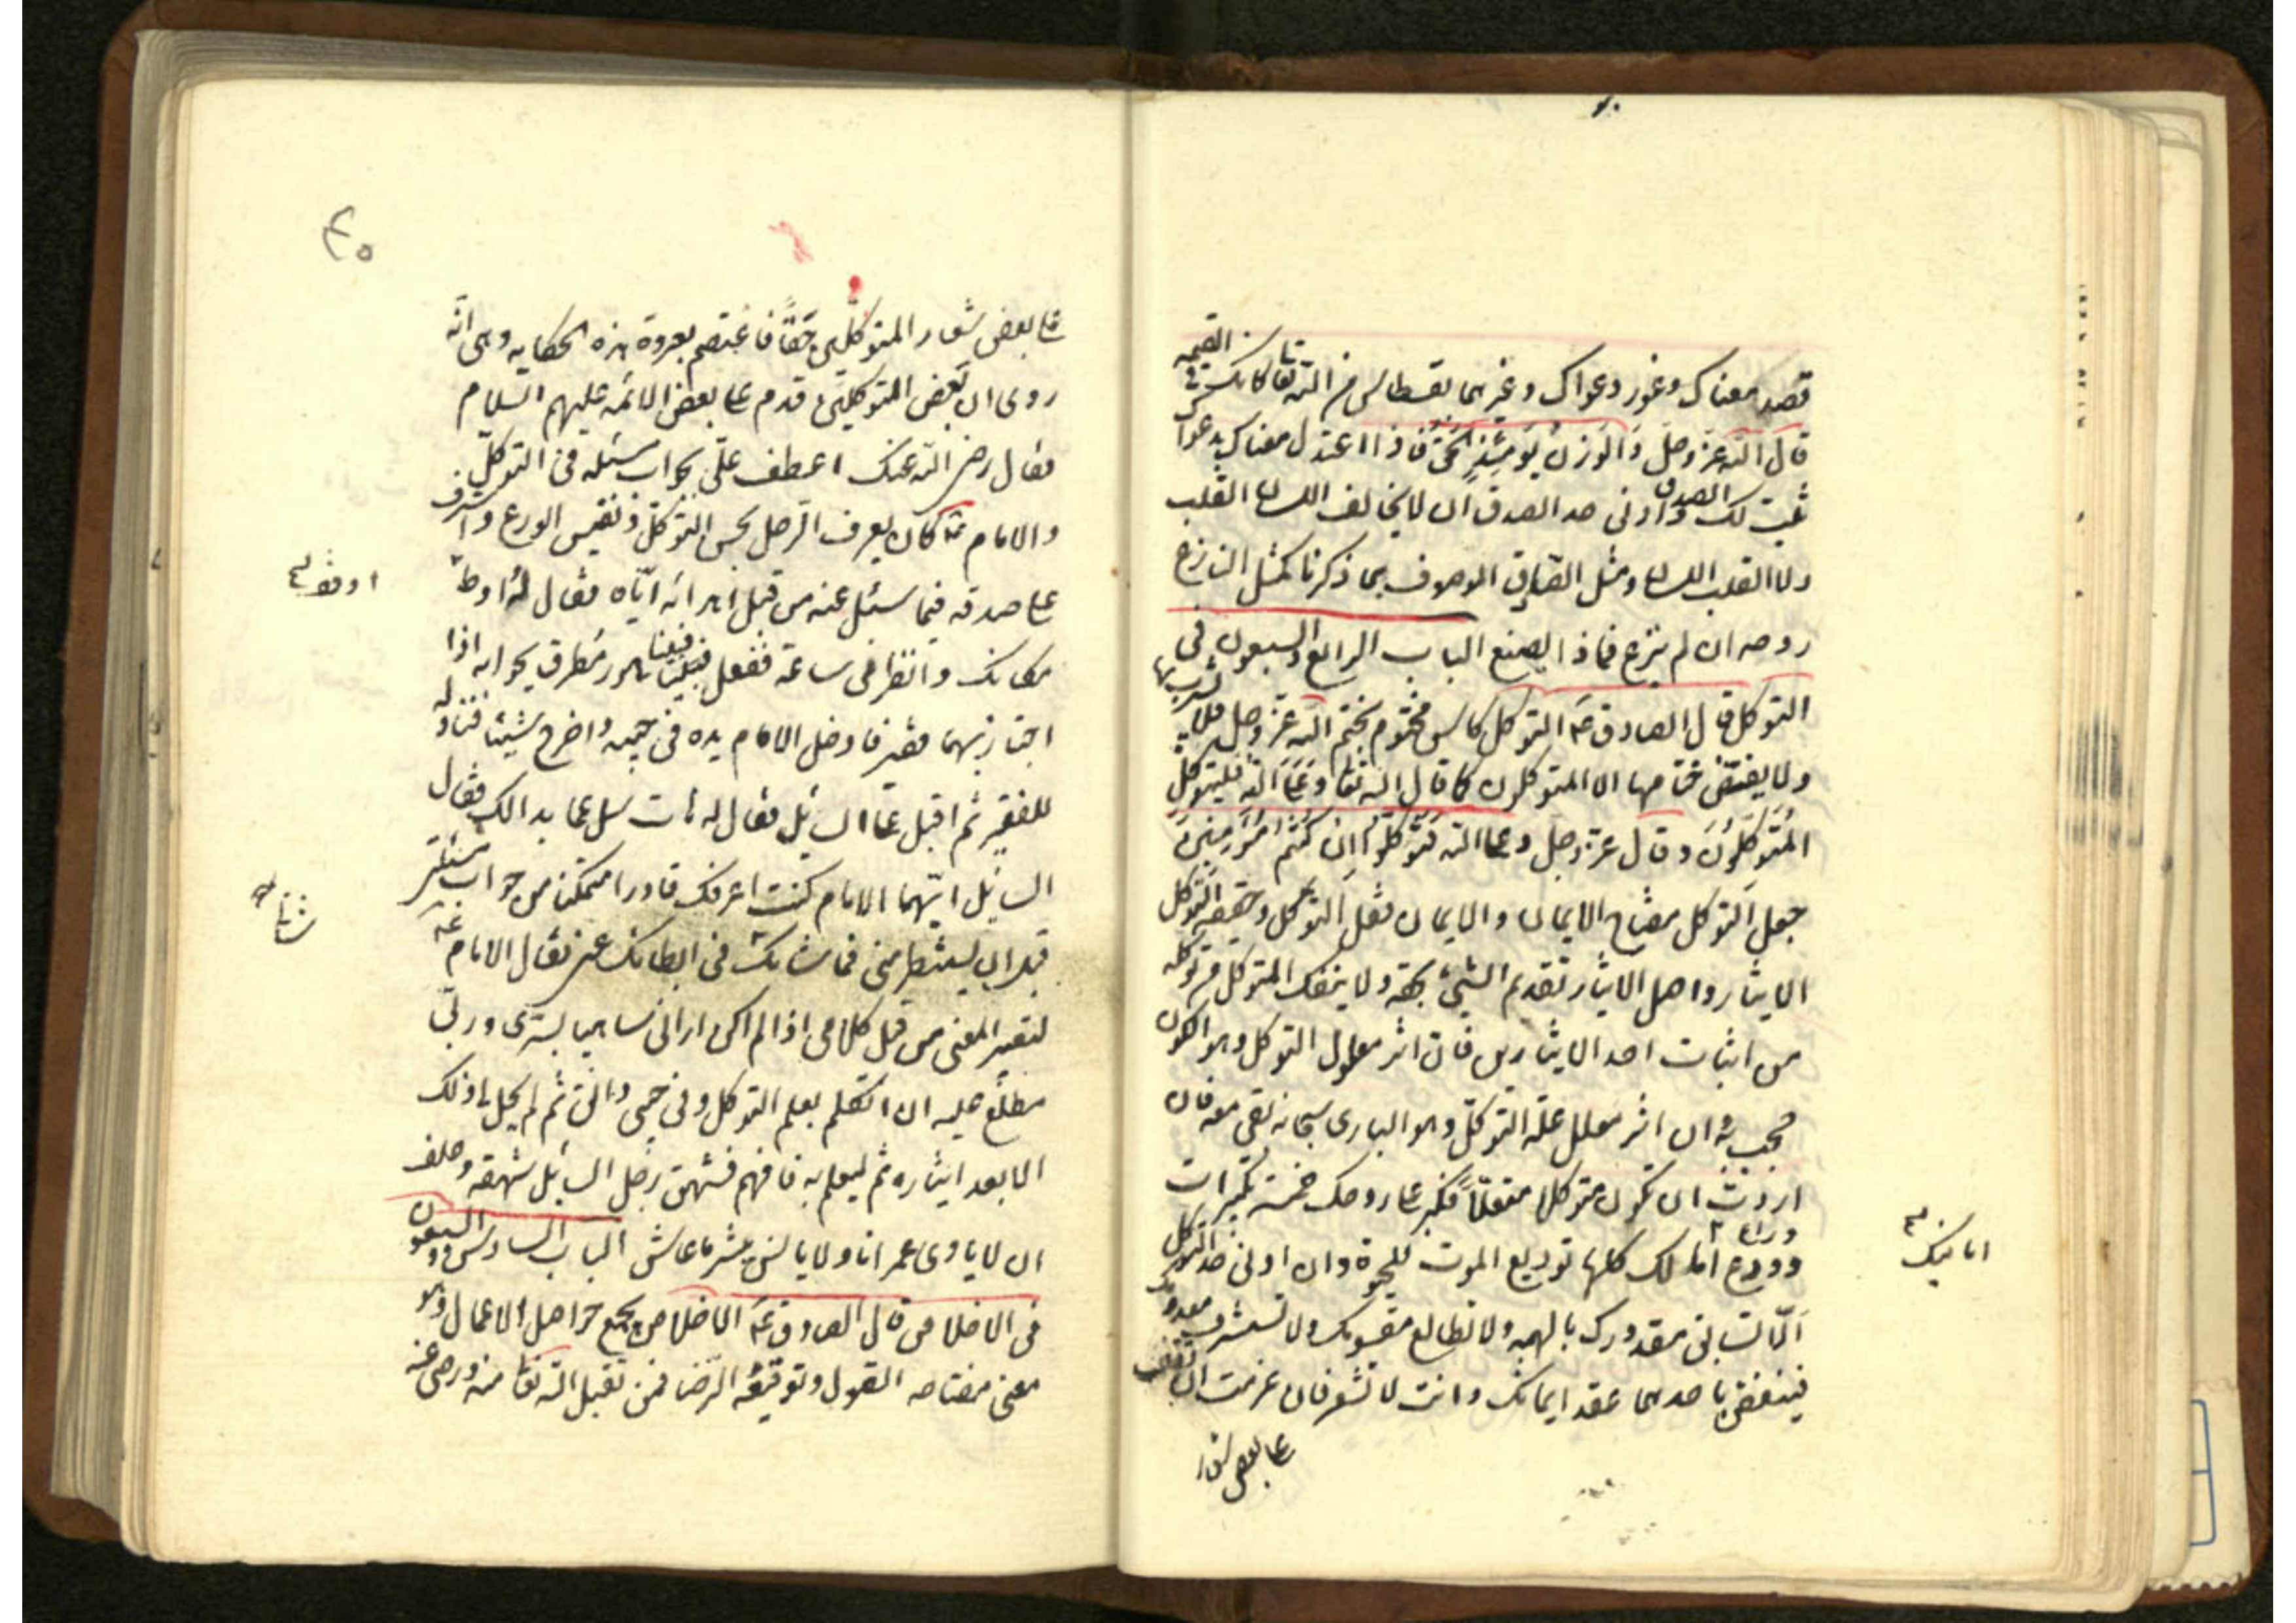 قصد معناك وغور دعواك وغيرهما بقسطاس من الله تعا كانك في القيمه
قال الله عز وجل وَالوَزنُ يَومَئِذٍ الحَقُّ فاذا اعتدل معناك بدعواك
ثبت لك الصدق وادنى حد الصدق ان لا يخالف اللسان القلب
ولا القلب اللسان ومثل الصادق الموصوف بما ذكرنا كمثل النازع
روحه ان لم ينزع فماذا يصنع الباب الرابع والسبعون في
التوكل قال الصادق ع التوكل كاس مختوم بختم الله عز وجل فلا يشرب بها
ولا يفتض ختامها الا المتوكلون كما قال الله تعا وَعَلَى اللهِ فَليَتَوَكَّلِ
المُتَوَكِّلُونَ وقال عز وجل وعلى الله فَتَوَكَّلُوا اِن كُنتُم مُؤمِنينَ
جعل التوكل مفتاح الايمان والايمان قفل التوكل وحقيقة التوكل
الايثار واصل الايثار تقديم الشيئ بحقه ولا ينفك المتوكل في توكله
من اثبات احد الايثارين فان اثر معلول التوكل وهو الكون
حجب به وان اثر معلل علة التوكل وهو البارى سبحانه بقى معه فان
اردت ان تكون متوكلا متعللا فكبر على روحك خمس تكبيرات
وودع امالك كلها توديع الموت للحيوة وان ادنى حد التوكل
الّا تسابق مقدورك بالهمه ولا تطالع مقسومك ولا تستشرف معدومك
فينتقض باحدهما عقد ايمانك وانت لا تشعر فان عزمت ان تقف
على بعض شعار
امانيك
على بعض شعار المتوكلين حقًّا فاعتصم بعروة هذه الحكايه وهى انّه
روى ان بعض المتوكلين قدم على بعض الائمه عليهم السلام
فقال رضى الله عنك اعطف علىّ بجواب مسئله فى التوكل
والامام ع كان يعرف الرجل بحسن التوكل ونفيس الورع واشرف
على صدقه فيما سئل عنه من قبل ابدائه اياه فقال له
مكانك وانظرنى ساعة ففعل فبينا هو مطرق بجوابه اذا
اجتاز بهما فقير فادخل الامام يده فى جيبه واخرج شيئا فناوله
للفقير ثم اقبل على السائل فقال له هات سل عما بدالك فقال
السائل ايّها الامام كنت اعرفك قادرا متمكنا من جواب مسئلتى
قبل ان تستنظرنى فما شانك فى ابطائك عنى فقال الامام ع
لتعتبر المعنى من قبل كلامى اذا لم اكن ارانى ساهيا بسرّى وربى
مطلع عليه ان اتكلم بعلم التوكل وفى جيبى دانق ثم لم يحل لى ذلك
الا بعد ايثاره ثم ليعلم به فافهم فشهق رجل السائل شهقه وحلف
ان لا ياوى عمرانا ولا يانس ببشر ما عاش الباب السادس والسبعون
فى الاخلاص قال الصادق ع الاخلاص يجمع حواصل الاعمال وهو
معنى مفتاحه القبول وتوقيعه الرّضا فمن تقبل الله تعا منه ورضى عنه
شانك